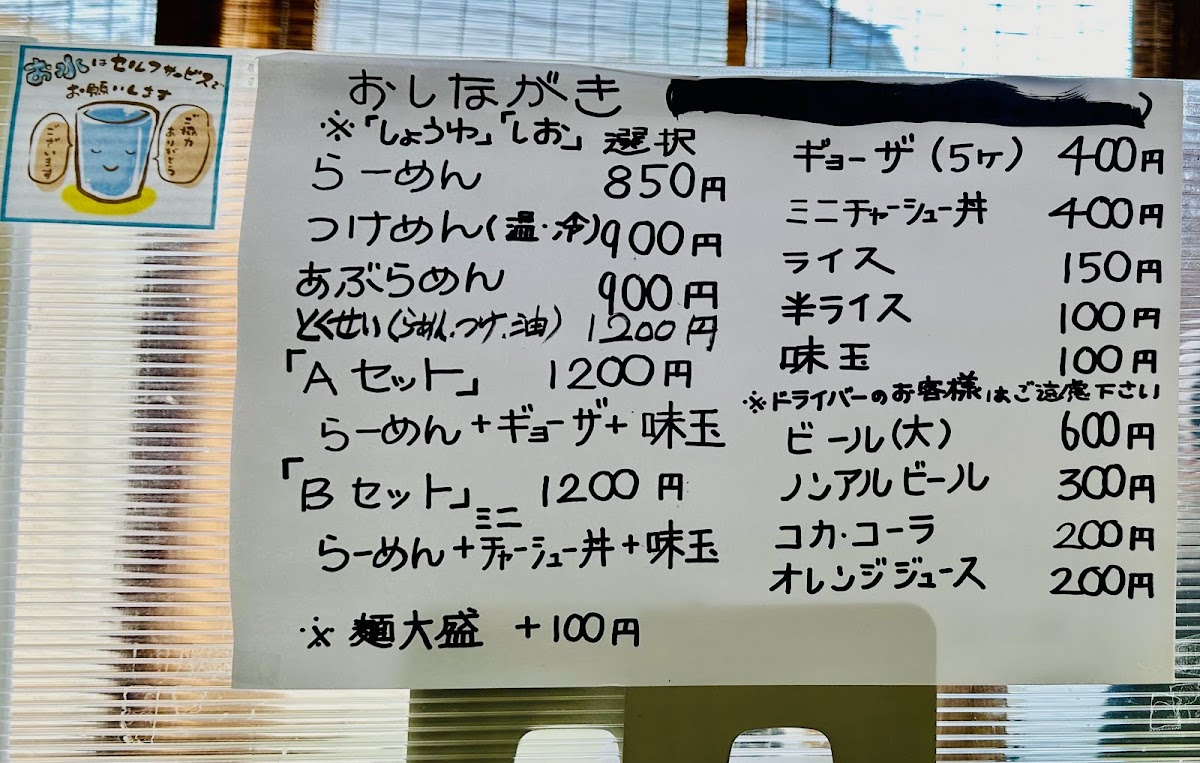 お水はセルフサービスで
お願いします
ご協力
ありがとう
ございます
おしながき
※「しょうゆ」「しお」選択
らーめん 850円
つけめん(温・冷) 900円
あぶらめん 900円
とくせい(らーめん.つけ.油) 1200円
「Aセット」 1200円
らーめん+ギョーザ+味玉
「Bセット」 1200円
らーめん+ミニチャーシュー丼+味玉
※ 麺大盛 +100円
ギョーザ(5ケ) 400円
ミニチャーシュー丼 400円
ライス 150円
半ライス 100円
味玉 100円
※ドライバーのお客様はご遠慮下さい
ビール(大) 600円
ノンアルビール 300円
コカ・コーラ 200円
オレンジジュース 200円